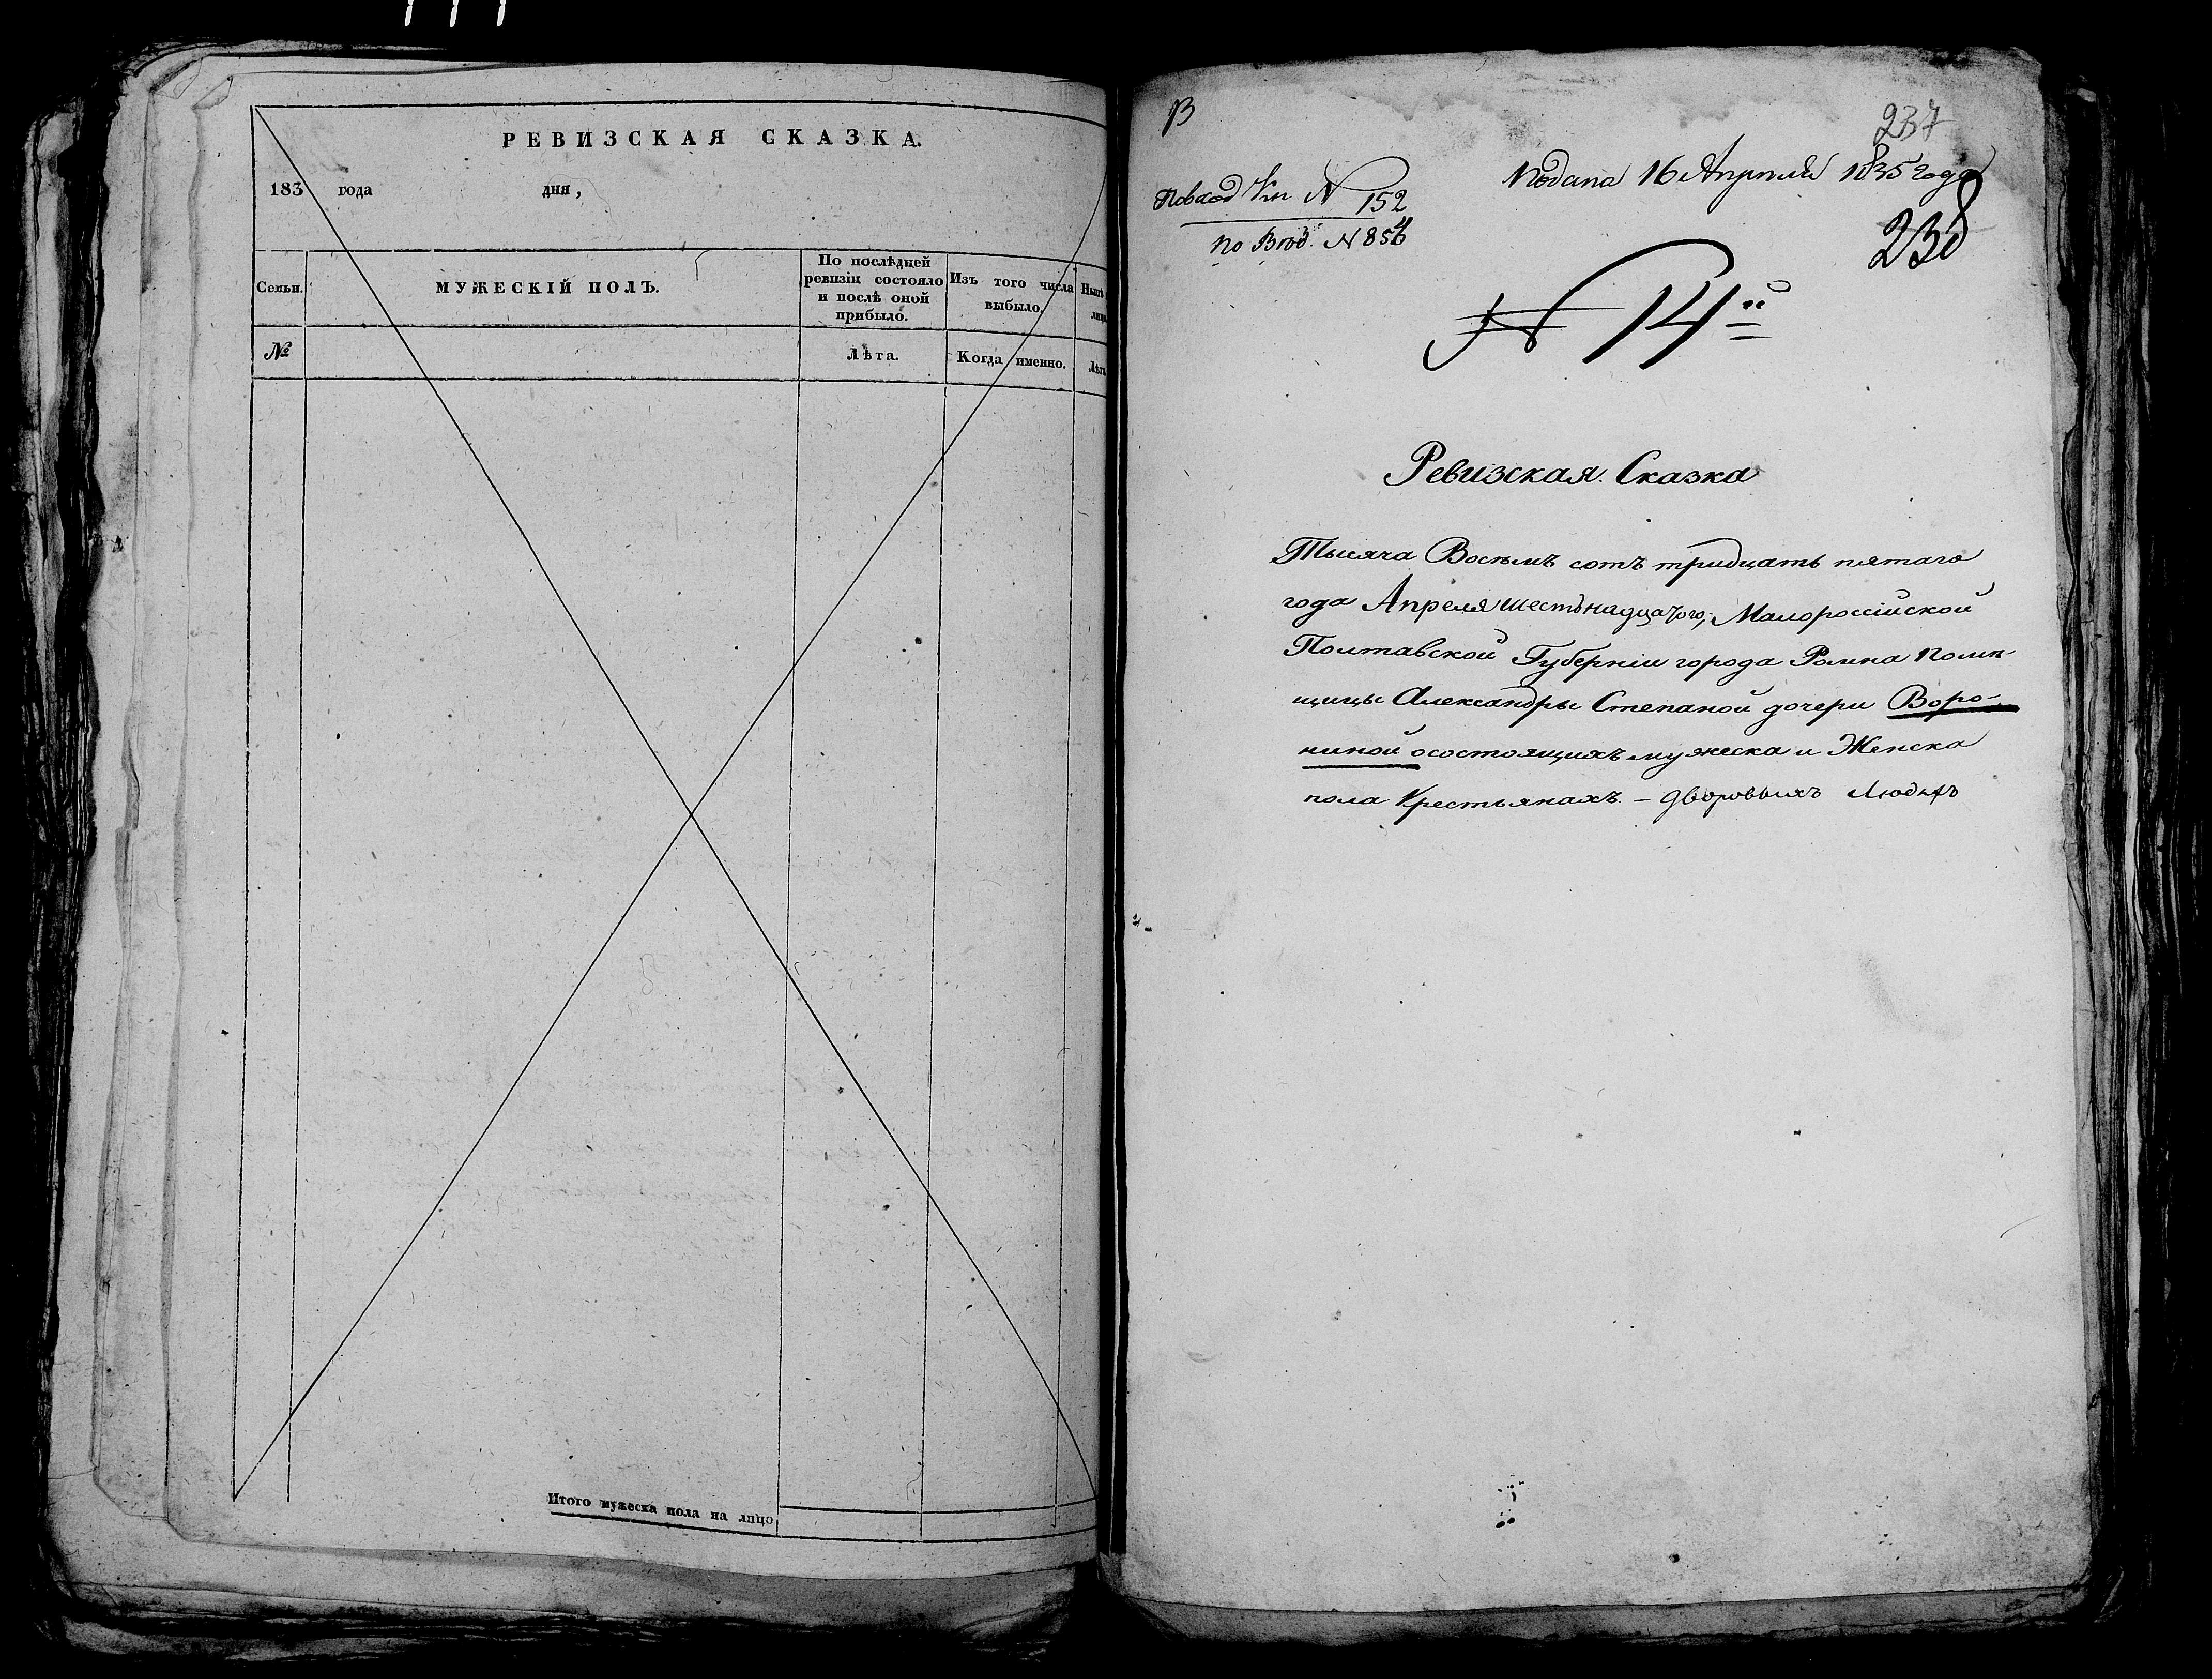 РЕВИЗСКАЯ СКАЗКА.
183 года дня,
Семьи.
МУЖЕСКІЙ ПОЛЪ.
По послѣдней
ревизіи состояло
и послѣ оной
прибыло.
Изъ того числа
выбыло.
№
Лѣта.
Когда именно.
Итого мужеска пола на лицо
В
237
Подана 16 Апреля 1835 года
238
N 152
по N 856
№ 14й
Ревизская. Сказка
Тысяча Восемъ сотъ тридцать пятаго
года Апреля шестьнадцатого, Малороссійской
Полтавской Губерніи города Ромна помѣ
щицы Александры Степаной дочери Воро-
ниной осостоящихъ мужеска и Женска
пола Крестьянахъ. – дворовыхъ Людяхъ